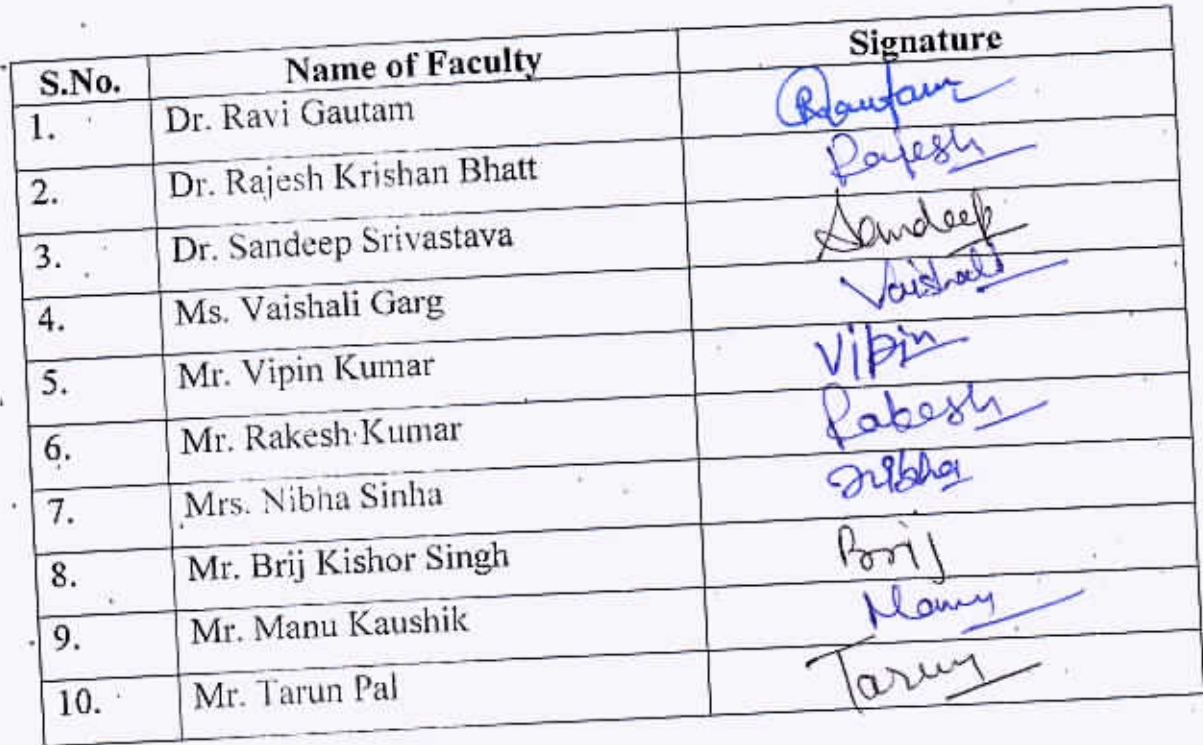 S.No. Name of Faculty Signature
1. Dr. Ravi Gautam RGautam
2. Dr. Rajesh Krishan Bhatt Rajesh
3. Dr. Sandeep Srivastava Sandeep
4. Ms. Vaishali Garg Vaishali
5. Mr. Vipin Kumar Vipin
6. Mr. Rakesh Kumar Rakesh
7. Mrs. Nibha Sinha Nibha
8. Mr. Brij Kishor Singh Brij
9. Mr. Manu Kaushik Manu
10. Mr. Tarun Pal Tarun